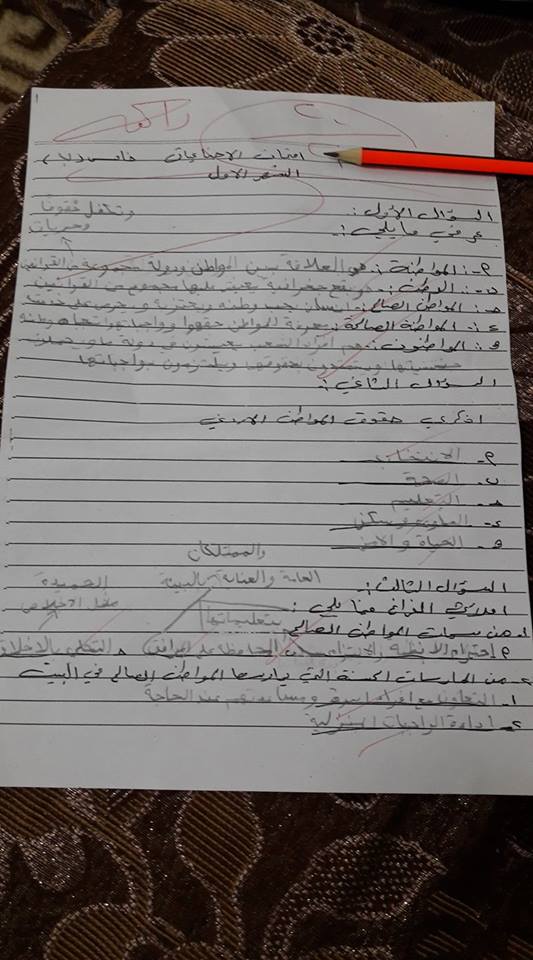 رائعة
٢٠
امتحان الاجتماعيات خامس (ب)
الشهر الأول
السؤال الأول:
وتكفل حقوقاً
وحريات
عرفي ما يلي:-
أ- المواطنة: هو العلاقة بين المواطن ودولة مجموعة من القوانين
ب- الوطن: هو بقع جغرافية يعيش عليها مجموع من القوانين
ج- المواطن الصالح: إنسان يحب وطنه ويحترمه و يحرص على خدمته
د- المواطنة الصالحة: معرفة المواطن حقوقه وواجباته اتجاه وطنه
هـ- المواطنون: هم أفراد الشعب يعيشون في دولة ما و يحملون
جنسيتها ويتمتعون بحقوقها ويلتزمون بواجباتها
السؤال الثاني:
اذكري حقوق المواطن الأردني
أ- الانتخاب
ب- الصحة
ج- التعليم
د- وسكن
هـ- الحياة و الأمن
والممتلكات
السؤال الثالث:- العامة والعناية بالبيئة الحميدة
املئي الفراغ فيما يلي: بتعليماتها مثل الاخلاص
١- من سمات المواطن الصالح:
أ احترام الأنظمة والالتزام ب المحافظة على المرافق د التحلي بالاخلاق
٢- من الممارسات الحسنة التي يمارسها المواطن الصالح في البيت
١- التعاون مع أفراد أسرته ومساعدتهم عند الحاجة
٢- الواجبات المنزلية